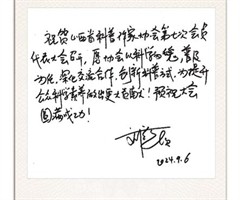 祝贺山西省科普作家协会第七次会员
代表大会召开，愿协会以科学为魂，普及
为任，深化交流合作，创新科普方式，为提升
公众科学素养做出更大贡献！预祝大会
圆满成功！
2024.9.6